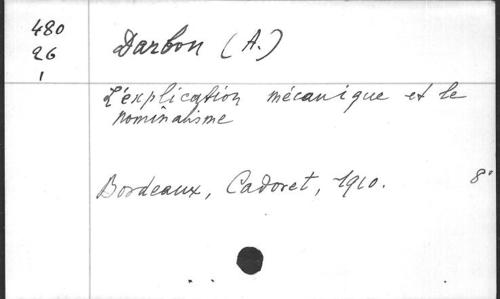 480
26
1
Darbon (A.)
L'explication mécanique et le
nominalisme
Bordeaux, Cadoret, 1910. 8°